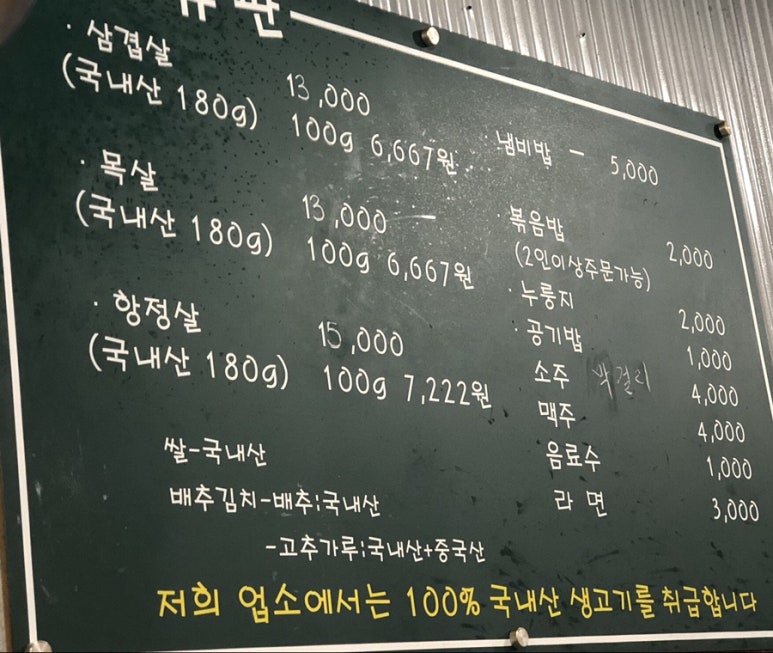 · 삼겹살
(국내산 180g)
13,000
100g 6,667원
· 목살
(국내산 180g)
13,000
100g 6,667원
· 항정살
(국내산 180g)
15,000
100g 7,222원
쌀-국내산
배추김치-배추:국내산
-고추가루:국내산+중국산
· 냄비밥 - 5,000
· 볶음밥 2,000
(2인이상주문가능)
· 누룽지 2,000
· 공기밥 1,000
소주 막걸리 4,000
맥주 4,000
음료수 1,000
라면 3,000
저희 업소에서는 100% 국내산 생고기를 취급합니다